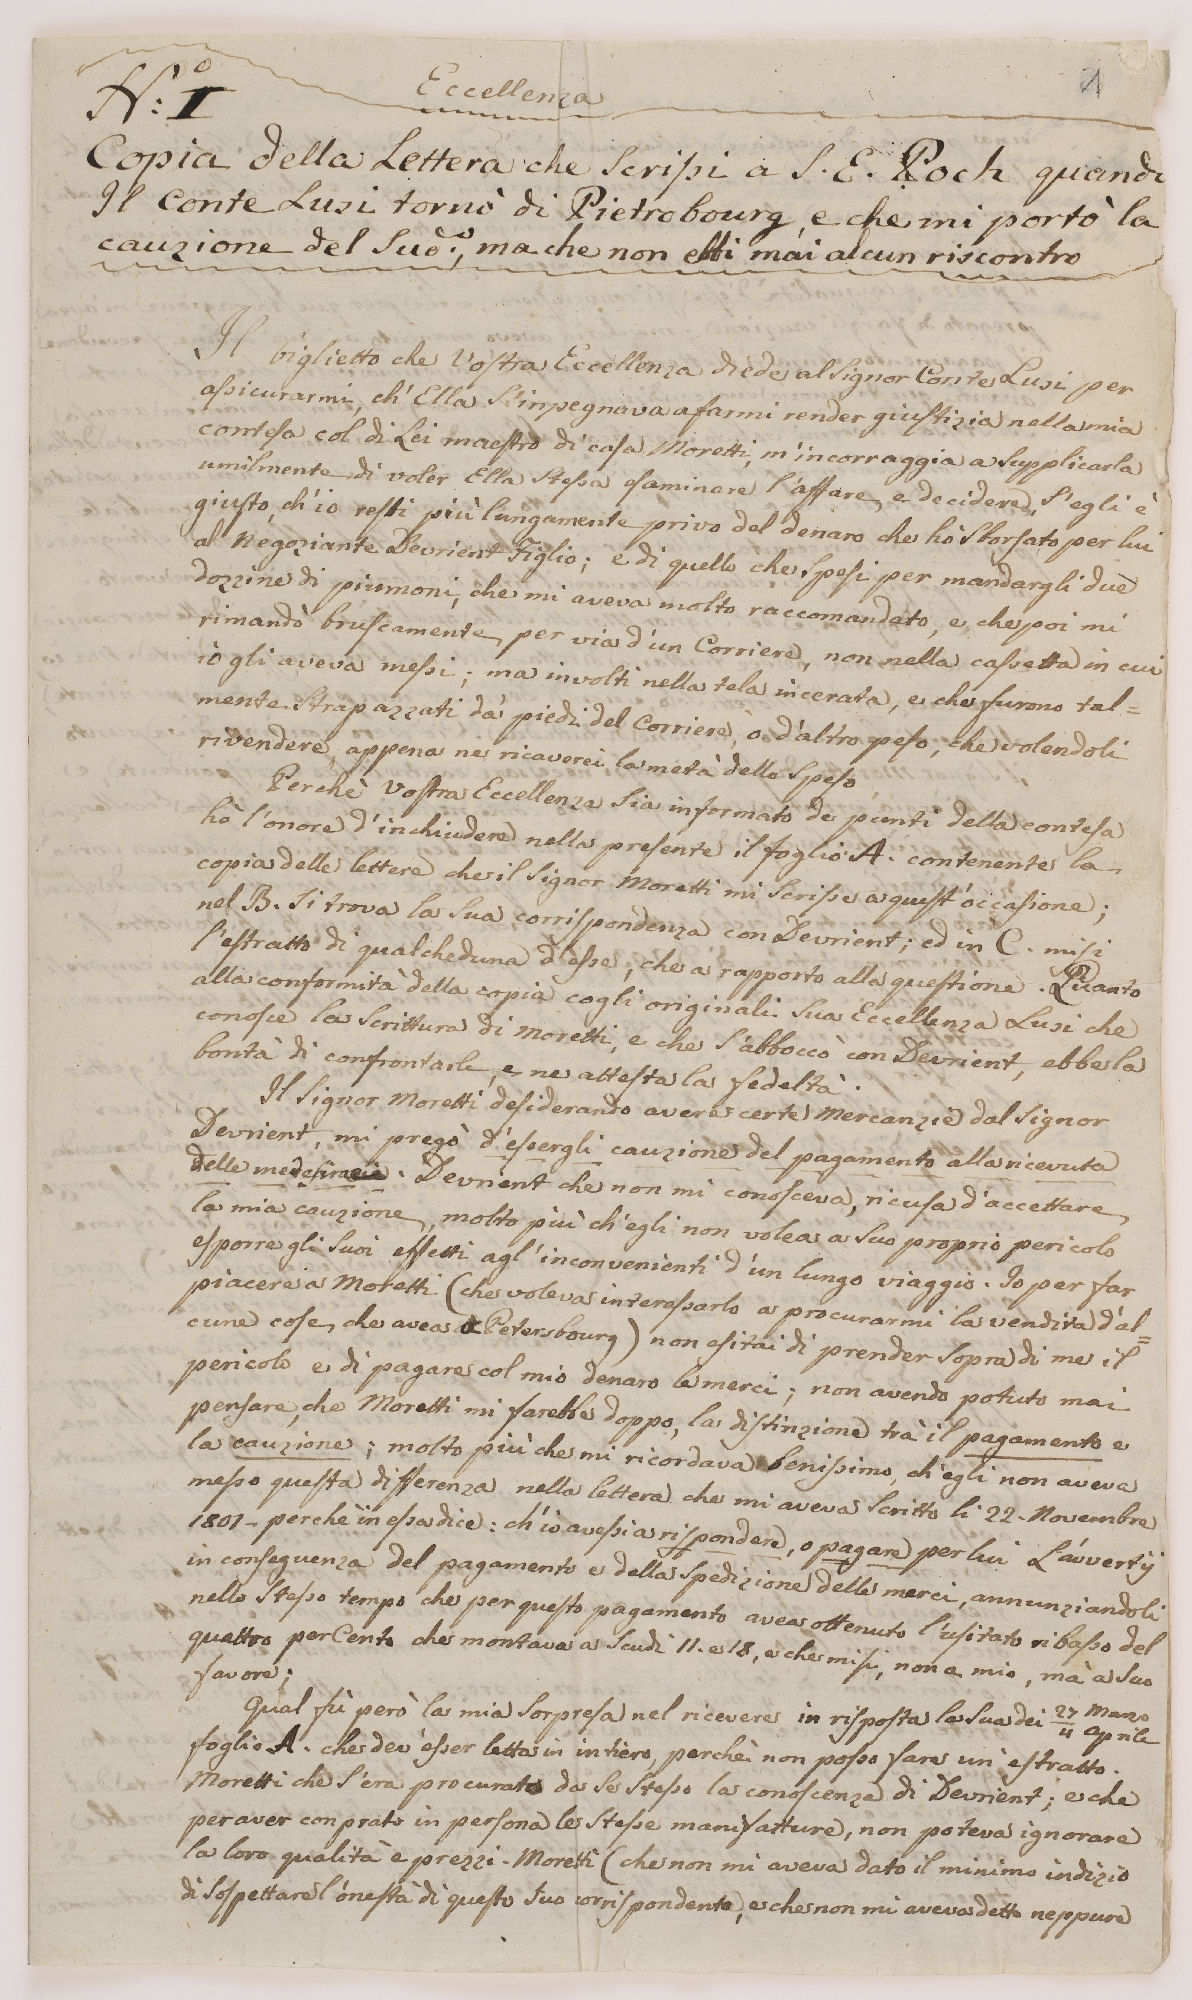 N:o I
Eccellenza
Copia della Lettera che Scrissi a S. E. Poch quando
Il Conte Lusi tornò di Pietrobourg, e che mi portò la
cauzione del Sudo, ma che non ebbi mai alcun riscontro
Il biglietto che Vostra Eccellenza diede al Signor Conte Lusi per
assicurarmi, ch'Ella S'inpegnava a farmi render giustizia nella mia
contesa col di Lei maestro di casa Moretti, m'incorraggia a Supplicarla
umilmente di voler Ella Stessa esaminare l'affare, e decidere, S'egli è
giusto, ch'io resti più lungamente privo del denaro che hò Sborsato per lui
al Negoziante Devrient Figlio; e di quello che Spesi per mandargli due
dozzine di piumoni, che mi aveva molto raccomandato, e che poi mi
rimandò bruscamente, per via d'un Corriere, non nella cassetta in cui
iò gli aveva messi; ma involti nella tela incerata, e che furono tal=
mente Strapazzati dà piedi del Corriere, ò d'altro peso, che volendoli
rivendere, appena ne ricaverei la metà dello Speso
Perchè Vostra Eccellenza Sia informato de punti della contesa
hò l'onore d'inchiudere nella presente il foglio A. contenente la
copia delle lettere che il Signor Moretti mi Scrisse a quest'occasione;
nel B. Si trova la Sua corrispondenza con Devrient; ed in C. misi
l'estratto di qualcheduna d'esse, che a rapporto alla questione. Quanto
alla conformità della copia cogli originali Sua Eccellenza Lusi che
conosce la Scrittura di Moretti, e che S'abboccò con Devrient, ebbe la
bontà di confrontarle, e ne attesta la fedeltà.
Il Signor Moretti desiderando avere certe Mercanzie dal Signor
Devrient, mi pregò d'essergli cauzione del pagamento alla ricevuta
delle medesime. Devrient che non mi conosceva, ricusa d'accettare
la mia cauzione, molto più ch'egli non volea a Suo proprio pericolo
esporre gli Suoi effetti agl'inconvenienti d'un lungo viaggio. Io per far
piacere a Moretti (che voleva interessarlo a procurarmi la vendita d'al=
cune cose, che avea a Petersbourg) non esitai di prender Sopra di me il
pericolo e di pagare col mio denaro le merci; non avendo potuto mai
pensare, che Moretti mi farebbe doppo, la distinzione trà il pagamento e
la cauzione; molto più che mi ricordava benissimo, ch'egli non aveva
messo questa differenza nella lettera che mi aveva Scritto li 22. Novembre
1801 - perchè in essa dice: ch'io avessi a rispondere, o pagare per lui L'avvertij
in conseguenza del pagamento e della Spedizione delle merci, annunziandoli
nello Stesso tempo che per questo pagamento avea ottenuto l'usitato ribasso del
quattro per Cento che montava a Scudi 11. e 18, e che misi, non a mio, mà a Suo
favore;
Qual fù però la mia Sorpresa nel ricevere in risposta la Sua dei 27 Marzo / 11 Aprile
foglio A. che dev'èsser letta in intiero, perchè non posso fare un'estratto.
Moretti che S'era procurato da Se Stesso la conoscenza di Devrient; e che
per aver conprato in persona le Stesse manifatture, non poteva ignorare
la loro qualità e prezzi. Moretti (che non mi aveva dato il minimo indizio
di Sospettare l'onestà di questo Suo corrispondente, e che non mi aveva detto neppure